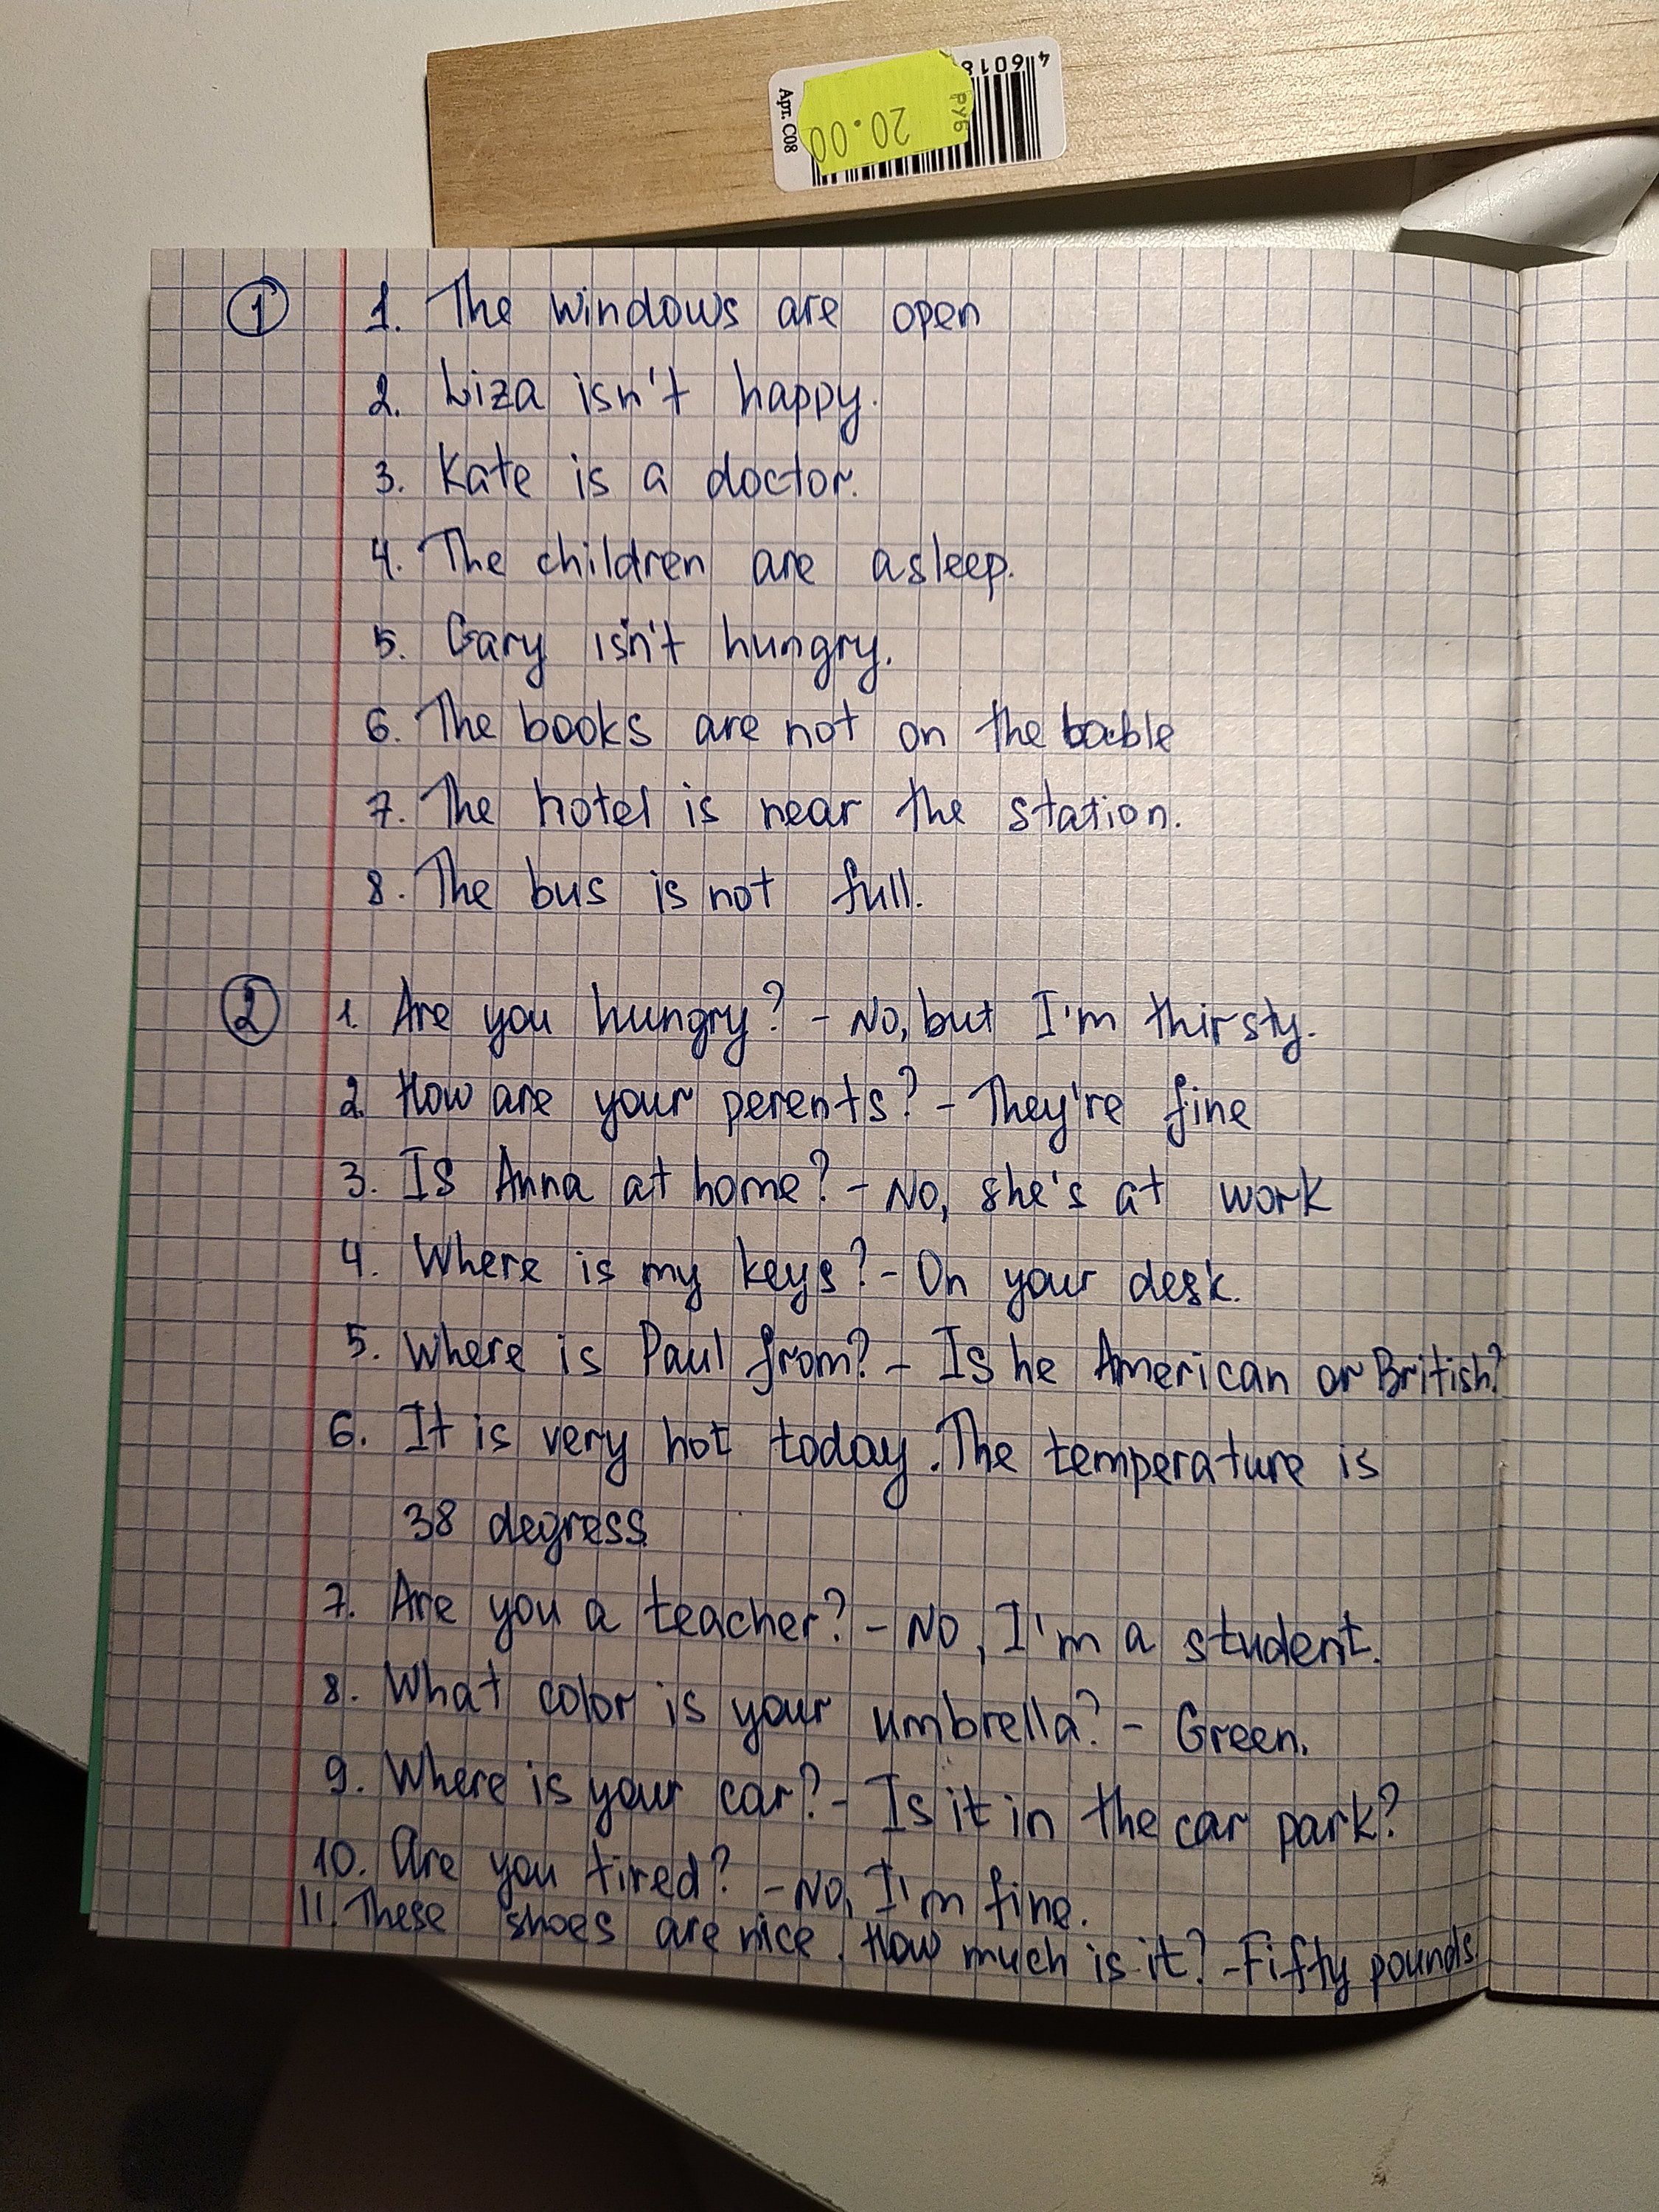 46018
РУБ
20.00
Арт. С08
1 1. The windows are open
2. Liza isn't happy.
3. Kate is a doctor.
4. The children are asleep.
5. Gary isn't hungry.
6. The books are not on the
7. The hotel is near the station.
8. The bus is not full.
2 1. Are you hungry? - No, but I'm thirsty.
2 How are your perents? - They're fine
3. Is Anna at home? - No, she's at work
4. Where is my keys? - On your desk.
5. Where is Paul from? - Is he American or British?
6. It is very hot today. The temperature is
38 degress
7. Are you a teacher? - No, I'm a student.
8. What color is your umbrella? - Green.
9. Where is your car? - Is it in the car park?
10. Are you tired? - No, I'm fine.
11. These shoes are nice. How much is it? - Fifty pounds